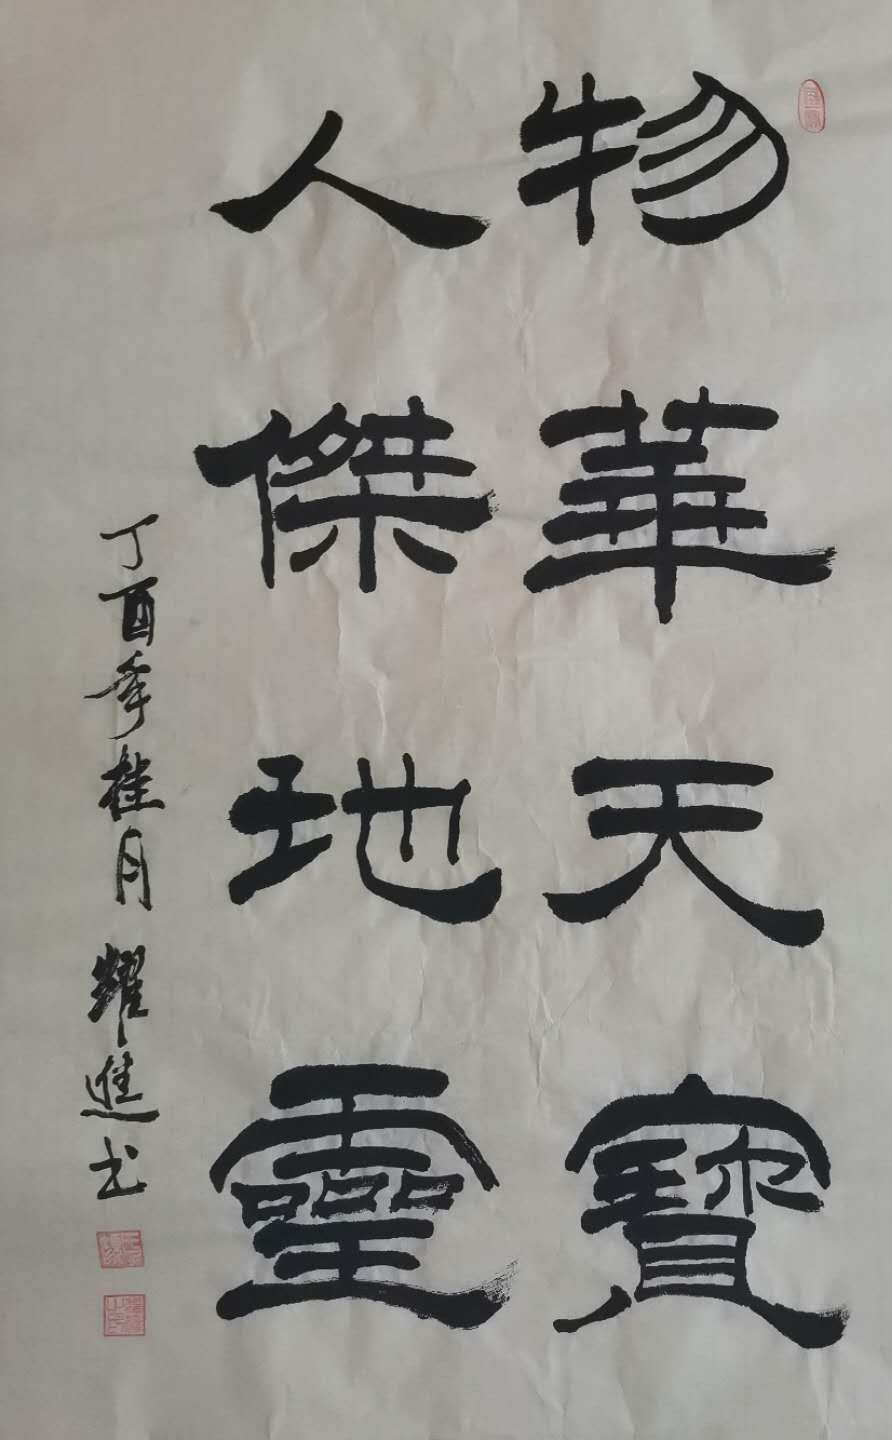 物華天寶
人傑地靈
丁酉年桂月耀進书